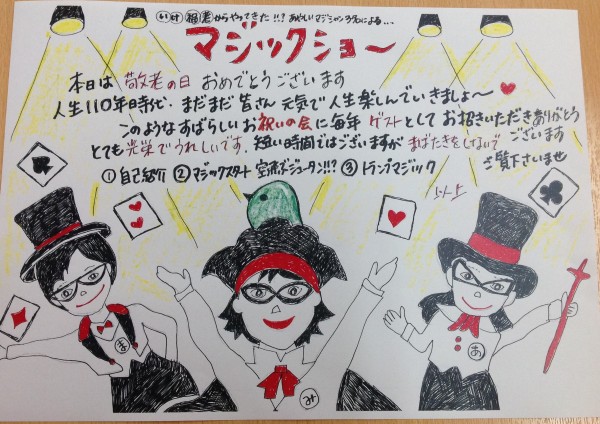 いけ福老からやってきた!!?あやしいマジシャン3名による...
マジックショー
本日は敬老の日 おめでとうございます
人生110年時代・まだまだ皆さん元気で人生楽しんでいきましょ〜
このようなすばらしいお祝いの会に毎年ゲストとしてお招きいただきありがとう
とても光栄でうれしいです。短い時間ではございますがまばたきをしないで ございます
ご覧下さいませ
①自己紹介 ②マジックスタート 空飛ぶジュータン!!? ③トランプマジック
ま
み
あ